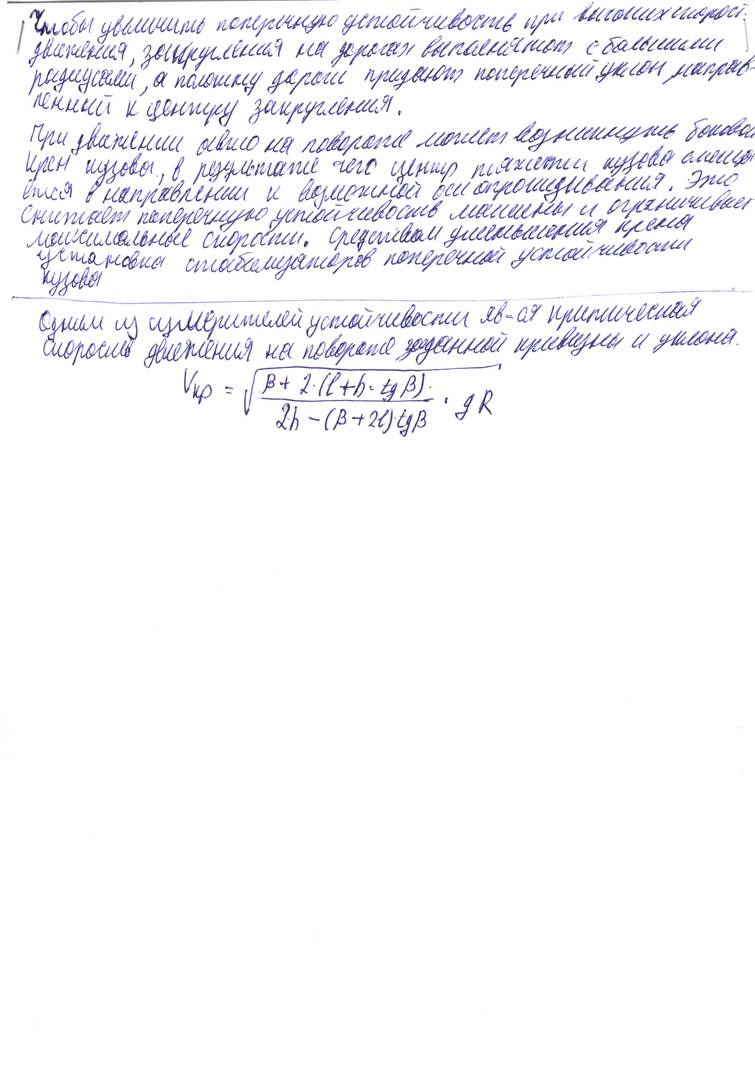 Чтобы увеличить поперечную устойчивость при высоких скорост-
движения, закругления на дорогах выполняют с большими
радиусами, а полотну дороги придают поперечный уклон, направ-
ленный к центру закругления.
При движении авто на повороте может возникнуть боковой
крен кузова, в результате чего центр тяжести кузова смеща
ется в направлении к возможной оси опрокидывания. Это
снижает поперечную устойчивость машины и ограничивает
максимальные скорости. Средством уменьшения крена
установка стабилизаторов поперечной устойчивости
кузова
Одним из измерителей устойчивости яв-ся критическая
скорость движения на повороте заданной кривизны и уклона.
Vкр = √((B + 2·(l + h · tg β)) / (2h − (B + 2l)·tg β) · gR)